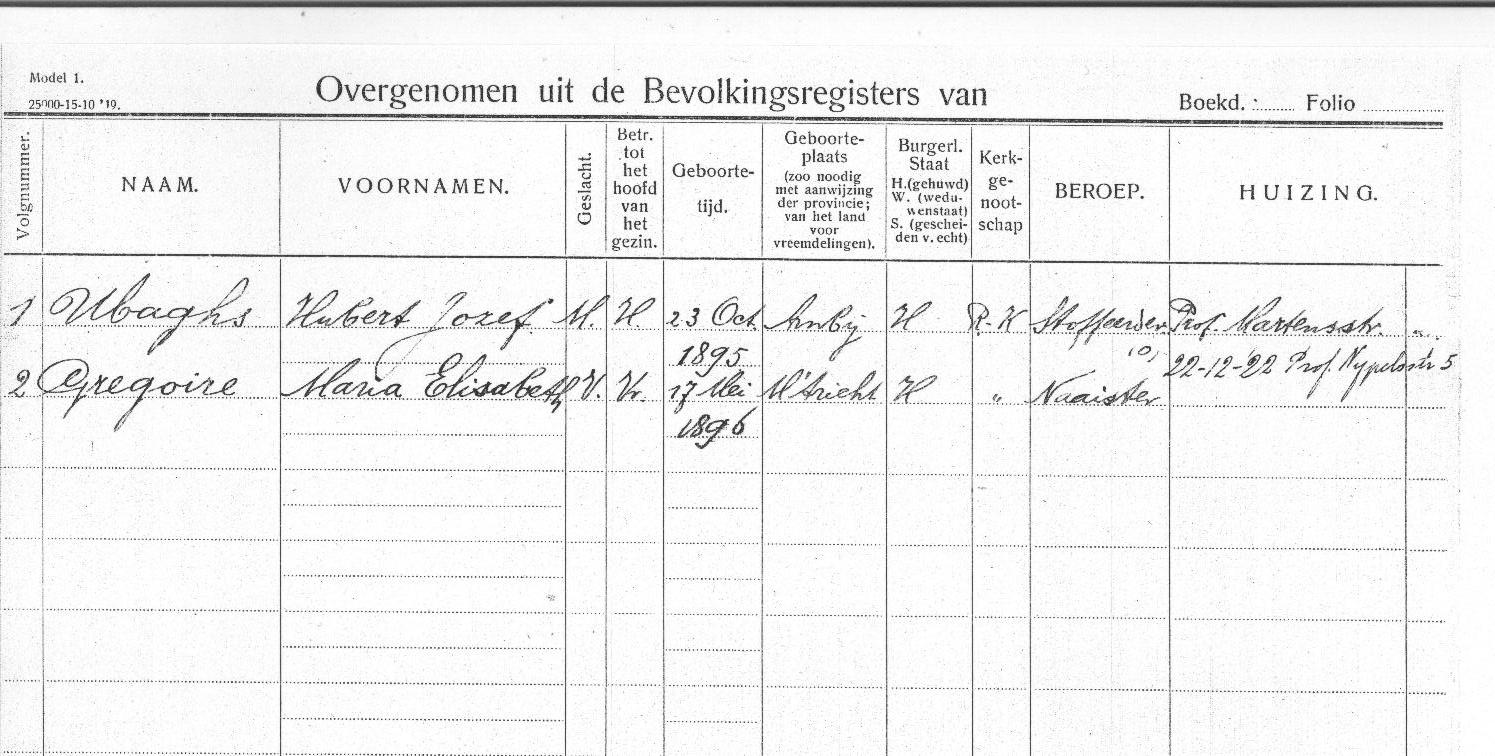 Model 1.
25000-15-10 '19.
Overgenomen uit de Bevolkingsregisters van
Boekd. : Folio
Volgnummer.
NAAM.
VOORNAMEN.
Geslacht.
Betr.
tot
het
hoofd
van
het
gezin.
Geboorte-
tijd.
Geboorte-
plaats
(zoo noodig
met aanwijzing
der provincie;
van het land
voor
vreemdelingen).
Burgerl.
Staat
H.(gehuwd)
W. (wedu-
wenstaat)
S. (geschei-
den v. echt)
Kerk-
ge-
noot-
schap
BEROEP.
HUIZING.
1 Ubaghs Hubert Jozef M. H. 23 Oct. Amby H R-K Stoffeerder Prof. Martensstr. „
1895 (o) 22-12-22 Prof. Nypelsstr 5
2 Gregoire Maria Elisabeth V. Vr. 17 Mei M'tricht H „ Naaister
1896